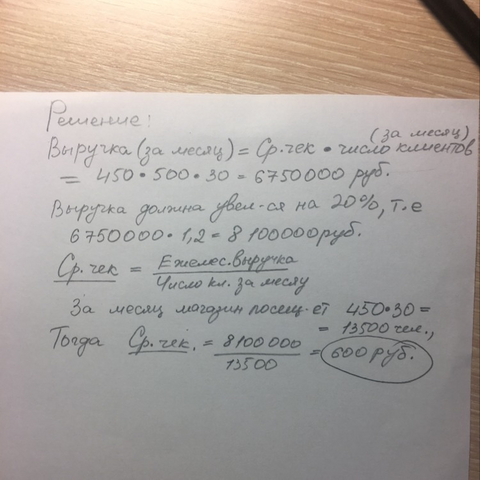 Решение:
(за месяц)
Выручка (за месяц) = Ср.чек • число клиентов
= 450 • 500 • 30 = 6750000 руб.
Выручка должна увел-ся на 20%, т.е
6750000 • 1,2 = 8 100000 руб.
Ср.чек = Ежемес.выручка
Число кл. за месяц
За месяц магазин посещ-ет 450•30 =
= 13500 чел.,
Тогда Ср.чек. = 8100 000
13500
= 600 руб.